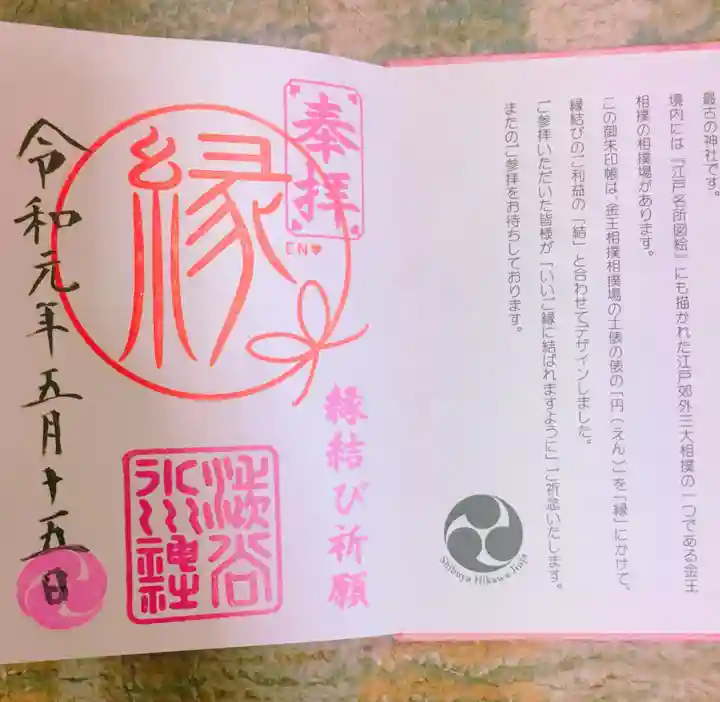 最古の神社です。
境内には『江戸名所図絵』にも描かれた江戸郊外三大相撲の一つである金王
相撲の相撲場があります。
この御朱印帳は、金王相撲相撲場の土俵の俵の「円(えん)」を「縁」にかけて、
縁結びのご利益の「結」と合わせてデザインしました。
ご参拝いただいた皆様が「いいご縁に結ばれますように」ご祈念いたします。
またのご参拝をお待ちしております。
Shibuya Hikawa Jinja
奉拝
EN♥
縁結び祈願
縁
渋谷
氷川神社
令和元年五月十五日